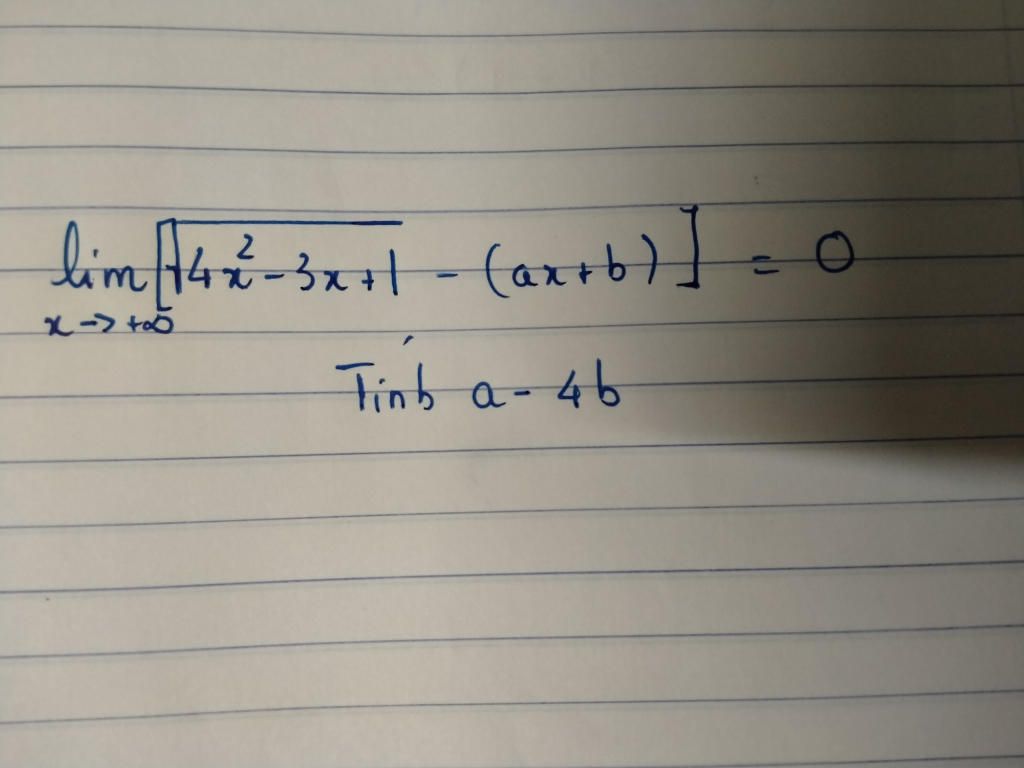 lim [√4x² - 3x + 1 - (ax + b)] = 0
x -> +∞
Tính a - 4b